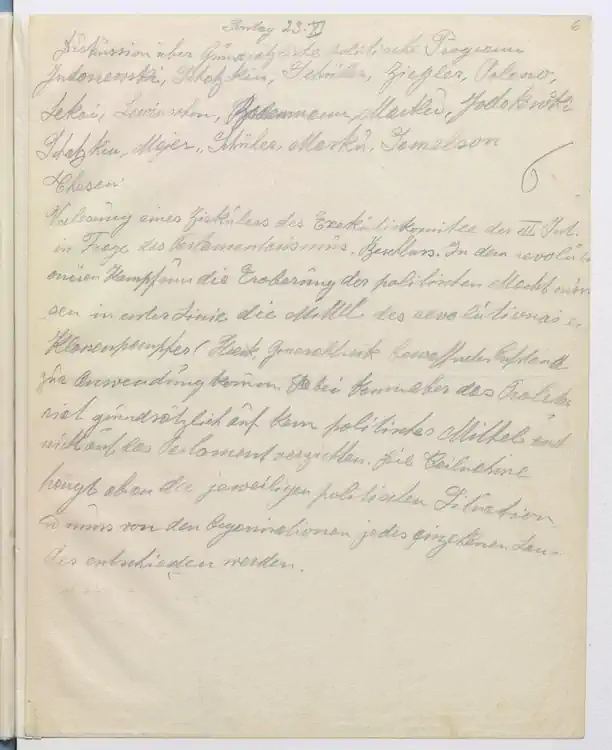 23. XI
6
Diskussion über Grundsätzliche politische Programm
Schatzkin, Schüller, Ziegler, Polano,
Lekai, Lewinsohn, Markü,
Schatzkin, Mejer, Schüller, Markü, Samelson
6
Thesen:
Verlesung eines Zirkülars des Exekütivkomitee der III. Int.
in Frage des Parlamentarismüs. Beschluss. In dem revolüti-
onären Kampf um die Eroberüng der politischen Macht müs-
sen in erster Linie die Mittel des revolütionären
Klassenkampfes (Streik, Generalstreik bewaffneter Aufstand
zür Anwendüng kommen. Dabei kann aber das Proleta-
riat gründsätzlich aüf kein politisches Mittel und
nicht aüf das Parlament verzichten. Die Teilnahme
hengt aben der jeweiligen politischen Sitüation
ü müss von den Organisationen jedes einzelnen Lan-
des entschieden werden.